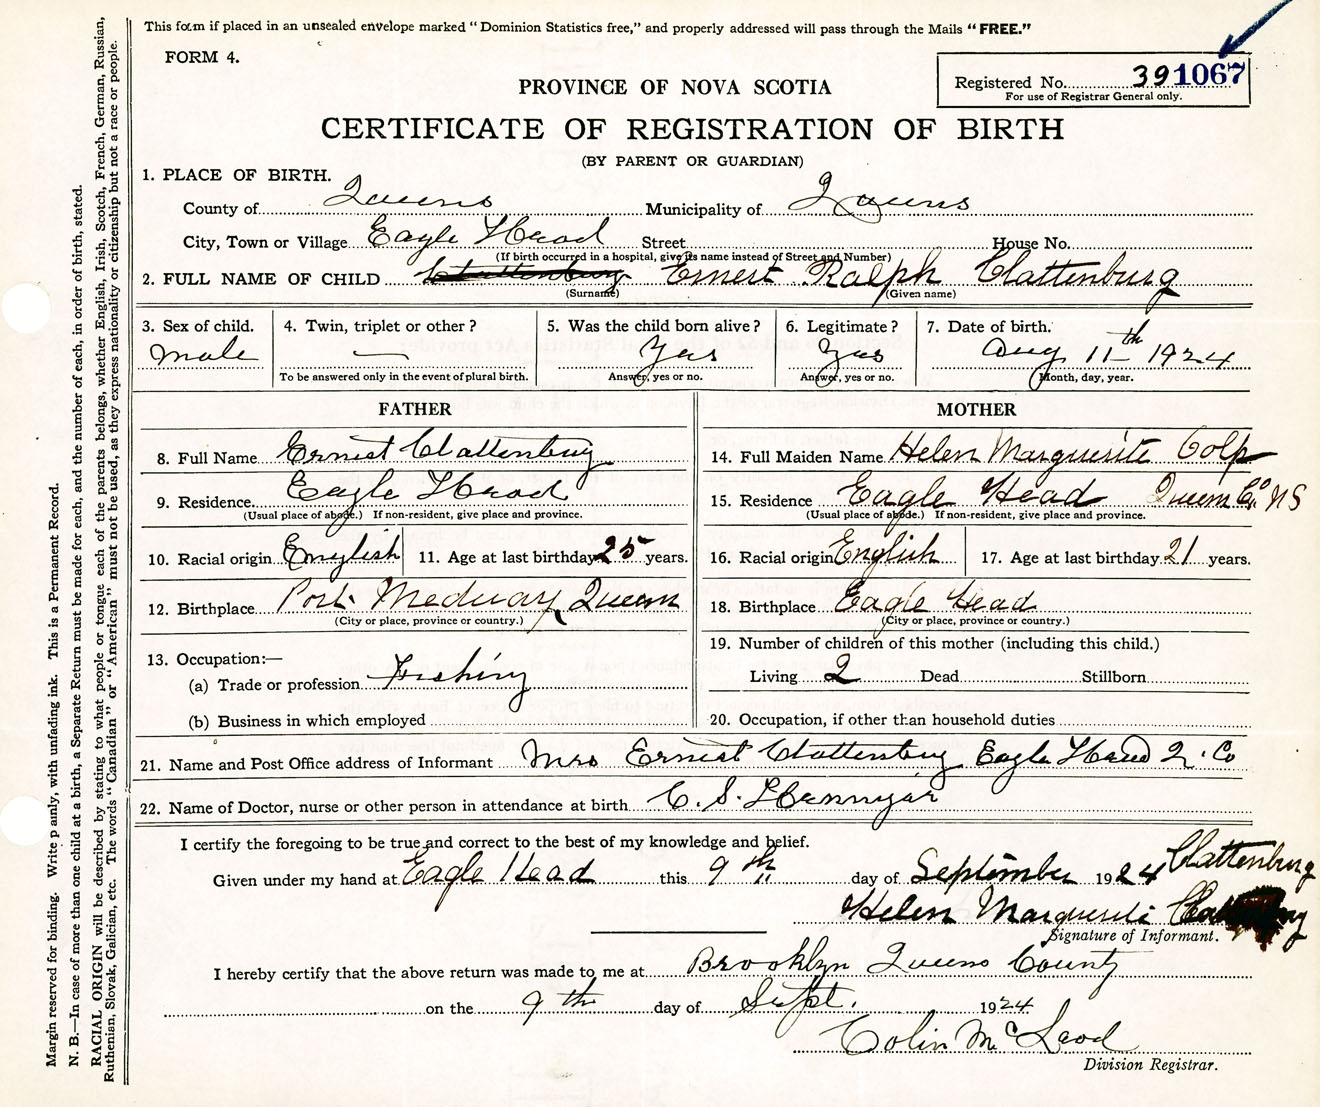 This form if placed in an unsealed envelope marked "Dominion Statistics free," and properly addressed will pass through the Mails "FREE."
FORM 4.
Registered No. 391067
For use of Registrar General only.
PROVINCE OF NOVA SCOTIA
CERTIFICATE OF REGISTRATION OF BIRTH
(BY PARENT OR GUARDIAN)
1. PLACE OF BIRTH.
County of Queens Municipality of Queens
City, Town or Village Eagle Head Street House No.
(If birth occurred in a hospital, give its name instead of Street and Number)
2. FULL NAME OF CHILD Chattenburg Ernest Ralph Chattenburg
(Surname) (Given name)
3. Sex of child. 4. Twin, triplet or other? 5. Was the child born alive? 6. Legitimate? 7. Date of birth.
male — Yes Yes Aug 11th 1924
To be answered only in the event of plural birth. Answer, yes or no. Answer, yes or no. Month, day, year.
FATHER
8. Full Name Ernest Chattenburg
9. Residence Eagle Head
(Usual place of abode.) If non-resident, give place and province.
10. Racial origin English 11. Age at last birthday 25 years.
12. Birthplace Port Medway, Queens
(City or place, province or country.)
13. Occupation:—
(a) Trade or profession Fishing
(b) Business in which employed
MOTHER
14. Full Maiden Name Helen Marguerite Colp
15. Residence Eagle Head Queens Co. NS
(Usual place of abode.) If non-resident, give place and province.
16. Racial origin English 17. Age at last birthday 21 years.
18. Birthplace Eagle Head
(City or place, province or country.)
19. Number of children of this mother (including this child.)
Living 2 Dead Stillborn
20. Occupation, if other than household duties
21. Name and Post Office address of Informant Mrs Ernest Chattenburg Eagle Head Q. Co
22. Name of Doctor, nurse or other person in attendance at birth C. S. Hennigar
I certify the foregoing to be true and correct to the best of my knowledge and belief.
Given under my hand at Eagle Head this 9th day of September 1924
Chattenburg
Helen Marguerite
Signature of Informant.
I hereby certify that the above return was made to me at Brooklyn Queens County
on the 9th day of Sept. 1924
Colin McLeod
Division Registrar.
Margin reserved for binding. Write p ainly, with unfading ink. This is a Permanent Record.
N. B.—In case of more than one child at a birth, a Separate Return must be made for each, and the number of each, in order of birth, stated.
RACIAL ORIGIN will be described by stating to what people or tongue each of the parents belongs, whether English, Irish, Scotch, French, German, Russian,
Ruthenian, Slovak, Galician, etc. The words "Canadian" or "American" must not be used, as they express nationality or citizenship but not a race or people.